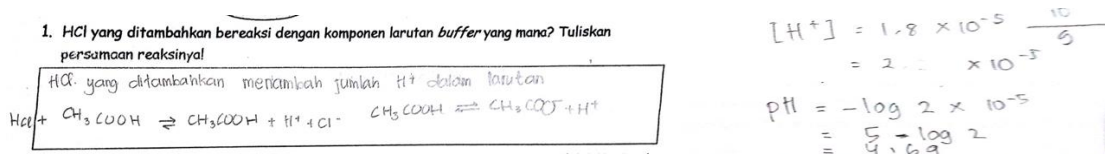 1. HCl yang ditambahkan bereaksi dengan komponen larutan buffer yang mana? Tuliskan
persamaan reaksinya!
HCl. yang ditambahkan menambah jumlah H+ dalam larutan
HCl + CH3COOH ⇌ CH3COOH + H+ + Cl-
CH3COOH ⇌ CH3COO- + H+
[H+] = 1,8 × 10-5 10/9
= 2 × 10-5
pH = -log 2 × 10-5
= 5 - log 2
= 4,69